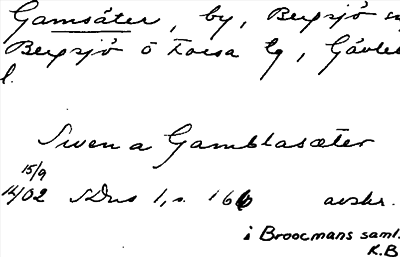 Gamsäter, by, Bergsjö
Bergsjö o Forsa tg, Gävle
l.
Swen a Gamblasæter
15/9
14/02 SDns 1, s. 166 avskr.
i Broocmans saml.
K.B